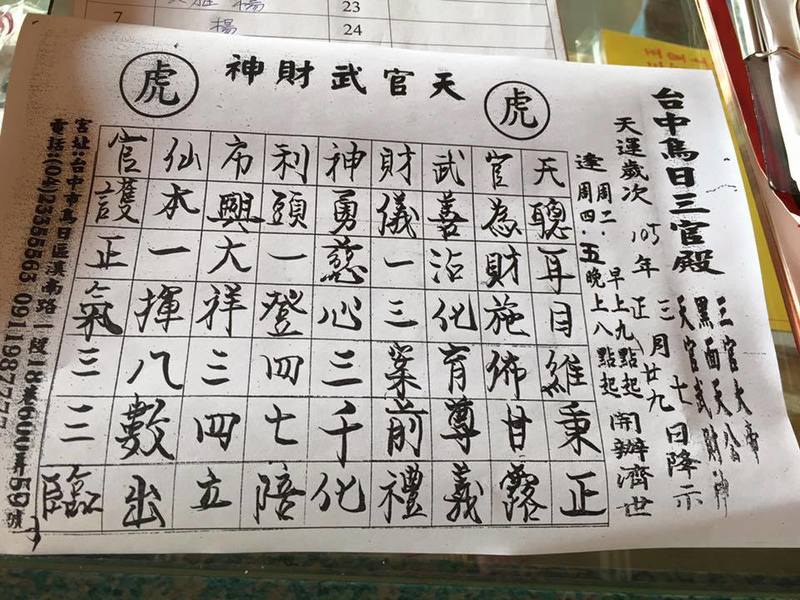 23
7 楊 24
虎 天官武財神 虎
台中烏日三官殿
三官大帝
黑面天公
天官武財神
天運歲次 105年 正 三月廿九 七日降示
逢 周二 早上九點起
周四·五 晚上八點起
開辦濟世
天聰耳目維秉正
官為財施佈甘露
武善沾化育尊義
財儀一三案前禮
神勇慈心三千化
利頭一登四七陪
布興大祥三四立
仙本一揮八數出
官護正氣三三臨
宮址:台中市烏日區溪南路一段二8巷600弄59號
電話:(04)23355563 0911987777